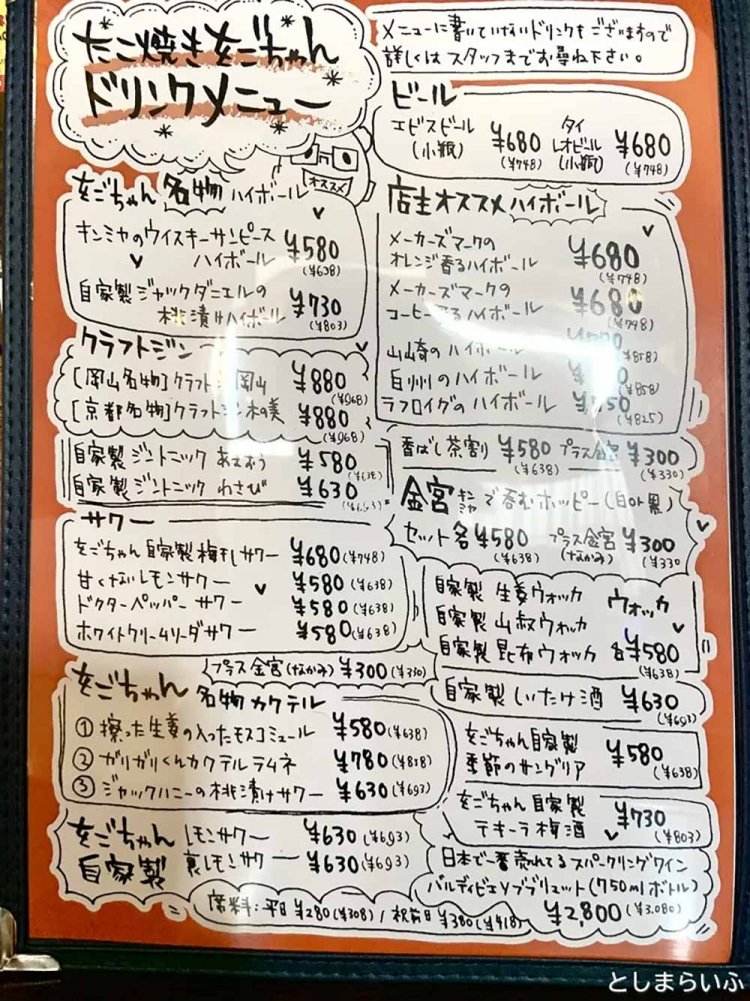 たこ焼きをごちゃん
ドリンクメニュー
メニューに書いていないドリンクもございますので
詳しくはスタッフまでお尋ね下さい。
オススメ
をごちゃん名物ハイボール
キンミヤのウイスキーサンピース
ハイボール ¥580
(¥638)
自家製ジャックダニエルの
桃漬けハイボール ¥730
(¥803)
クラフトジン
[岡山名物]クラフトジン岡山 ¥880
(¥968)
[京都名物]クラフトジン木の美 ¥880
(¥968)
自家製ジントニック ¥580
(¥638)
自家製ジントニック わさび ¥630
(¥693)
サワー
をごちゃん自家製梅干しサワー ¥680(¥748)
甘くないレモンサワー ¥580(¥638)
ドクターペッパーサワー ¥580(¥638)
ホワイトクリームソーダサワー ¥580(¥638)
プラス金宮(なかみ) ¥300(¥330)
をごちゃん名物カクテル
① 擦った生姜の入ったモスコミュール ¥580(¥638)
② ガリガリくんカクテルラムネ ¥780(¥858)
③ ジャックハニーの桃漬けサワー ¥630(¥693)
をごちゃん レモンサワー ¥630(¥693)
自家製 裏レモンサワー ¥630(¥693)
席料:平日¥280(¥308)/祝前日¥380(¥418)
ビール
エビスビール
(小瓶) ¥680
(¥748)
タイ
レオビール
(小瓶) ¥680
(¥748)
店主オススメハイボール
メーカーズマークの
オレンジ香るハイボール ¥680
(¥748)
メーカーズマークの
コーヒー香るハイボール ¥680
(¥748)
山崎のハイボール
(¥858)
白州のハイボール
(¥858)
ラフロイグのハイボール ¥750
(¥825)
香ばし茶割り ¥580 プラス金宮 ¥300
(¥638) (¥330)
金宮キンミヤで呑むホッピー(白or黒)
セット各¥580 プラス金宮 ¥300
(¥638) (なかみ) (¥330
自家製 生姜ウォッカ ウォッカ
自家製 山椒ウォッカ
自家製 昆布ウォッカ 各¥580
(¥638)
自家製しいたけ酒 ¥630
(¥693)
をごちゃん自家製
季節のサングリア ¥580
(¥638)
をごちゃん自家製
テキーラ梅酒 ¥730
(¥803)
日本で一番売れてるスパークリングワイン
バルディビエソブリュット(750mlボトル)
¥2,800(¥3.080)
としまらいふ